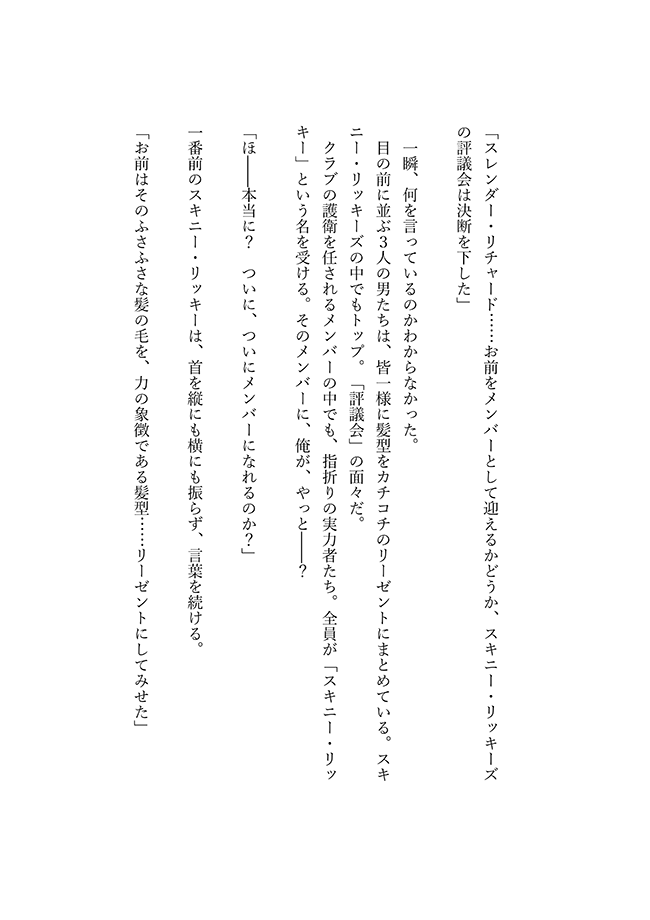 「スレンダー・リチャード……お前をメンバーとして迎えるかどうか、スキニー・リッキーズ
の評議会は決断を下した」
一瞬、何を言っているのかわからなかった。
目の前に並ぶ3人の男たちは、皆一様に髪型をカチコチのリーゼントにまとめている。スキ
ニー・リッキーズの中でもトップ。「評議会」の面々だ。
クラブの護衛を任されるメンバーの中でも、指折りの実力者たち。全員が「スキニー・リッ
キー」という名を受ける。そのメンバーに、俺が、やっと――?
「ほ――本当に? ついに、ついにメンバーになれるのか?」
一番前のスキニー・リッキーは、首を縦にも横にも振らず、言葉を続ける。
「お前はそのふさふさな髪の毛を、力の象徴である髪型……リーゼントにしてみせた」